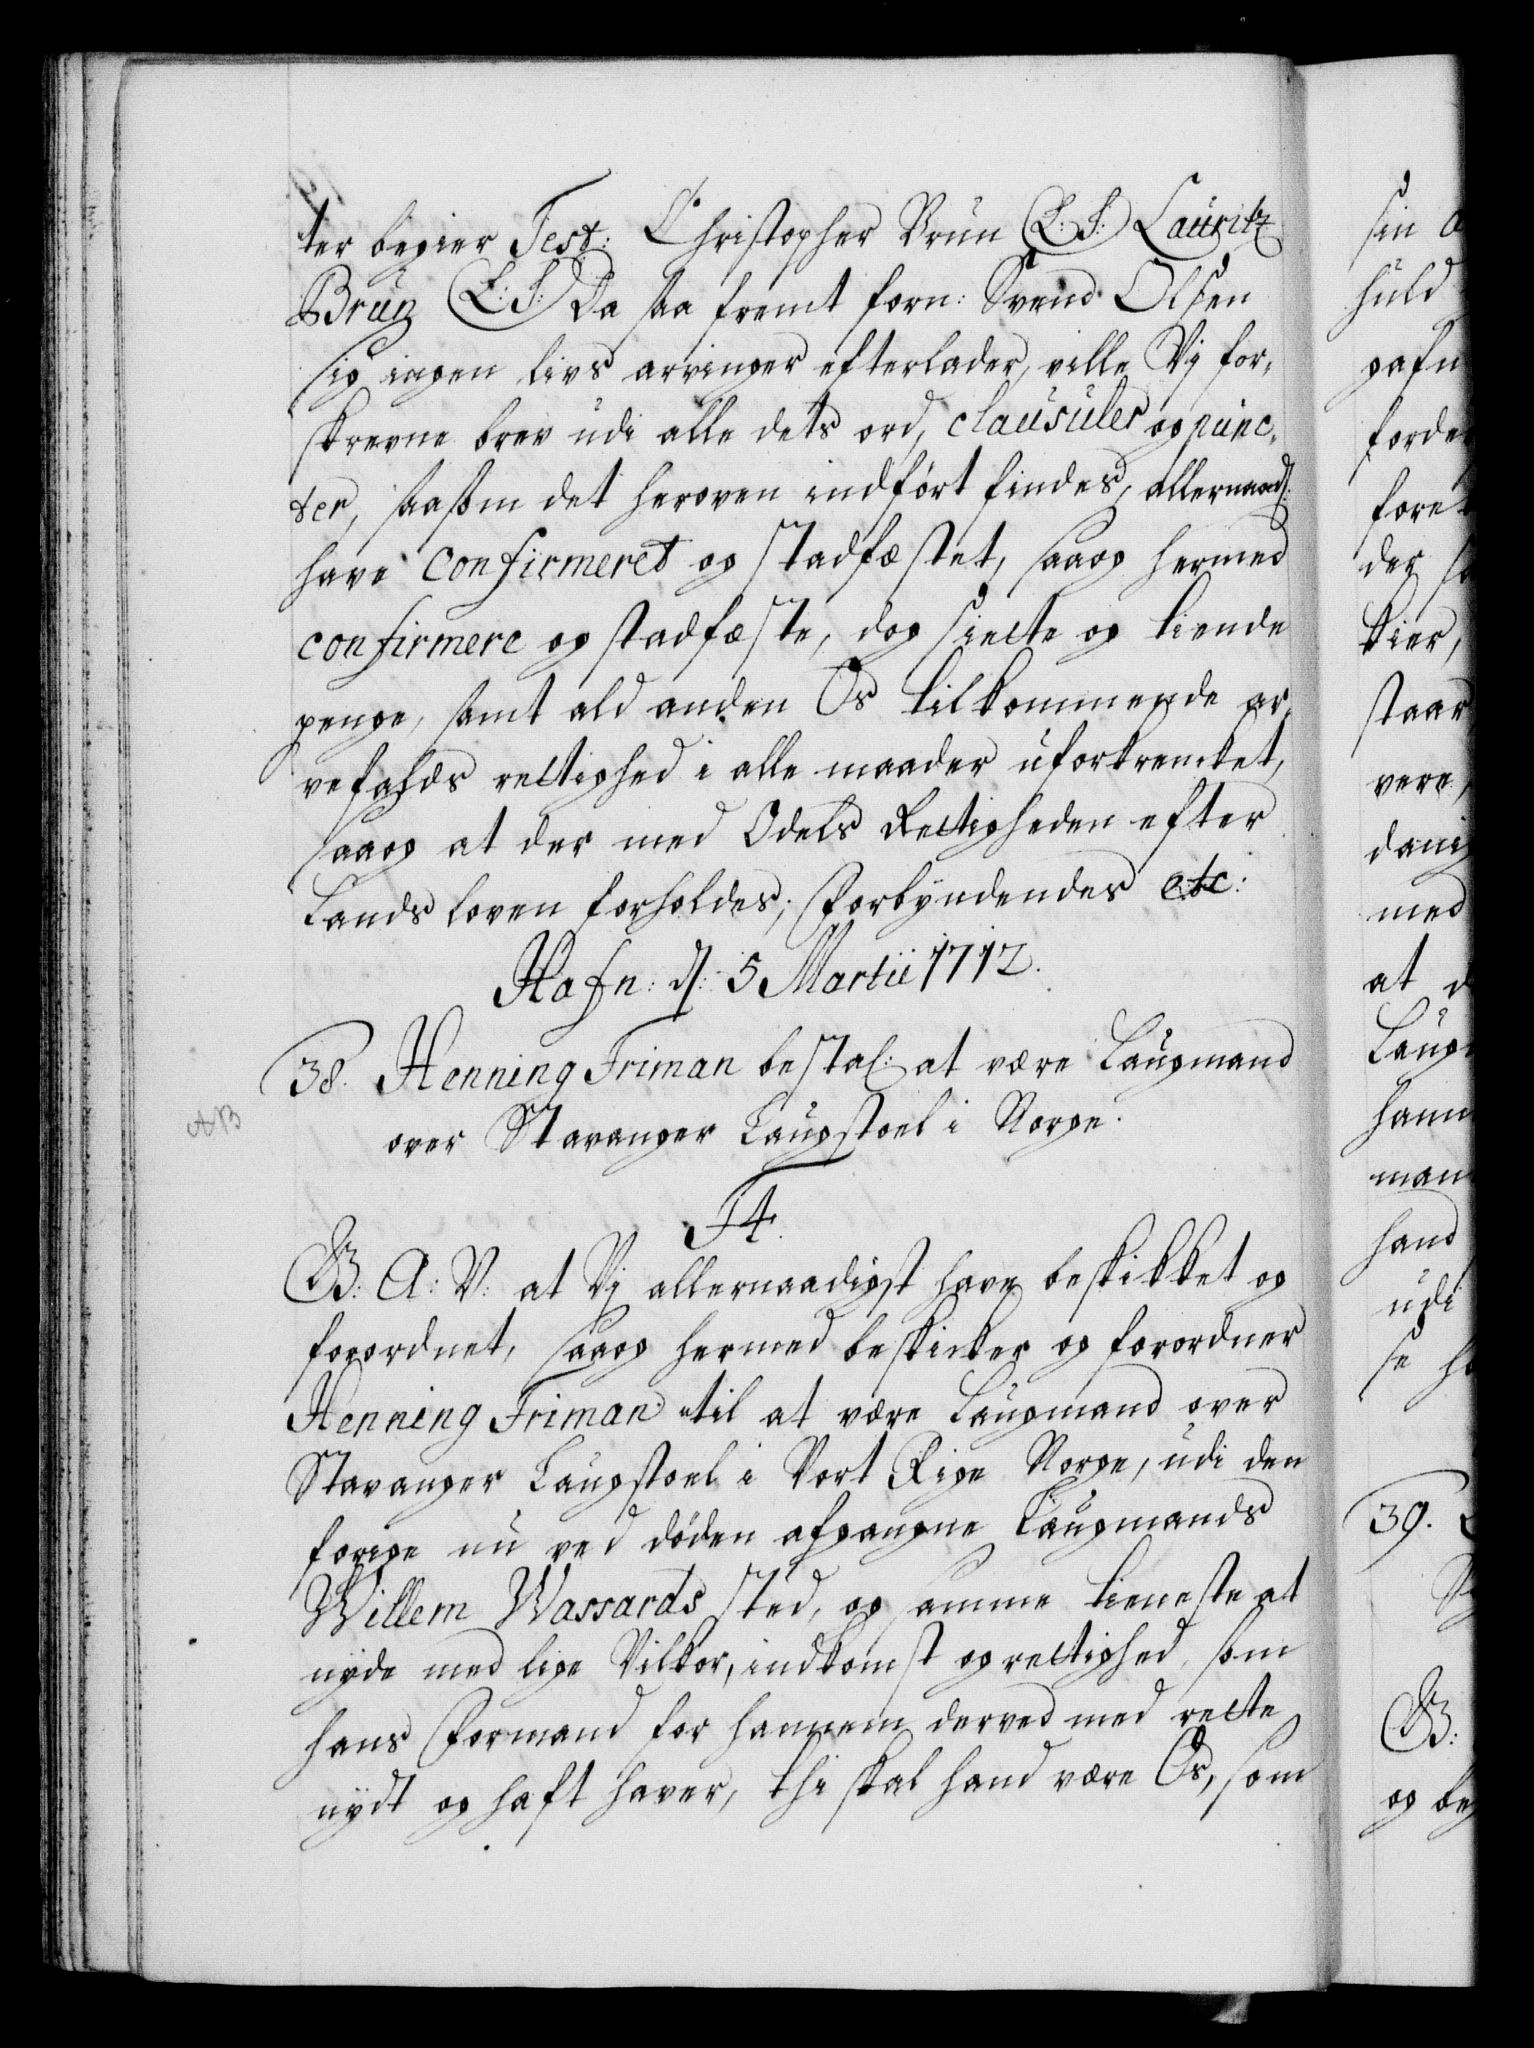 ter begier Test: Christopher Brun (L:S:) Lauritz
Brun (L:S:) Da saa fremt forn: Svend Olsen
sig ingen livs arvinger efterlader, ville Vj for-
skrevne brev udi alle dets ord, clausuler og punc-
ter, saasom det heroven indført findes, allernaads:
have confirmeret og stadfæstet, saaog hermed
confirmere og stadfæste, dog siette og tiende
penge, samt ald anden Os tilkommende ar-
vefalds rettighed i alle maader uforkrencket,
saaog at der med Odels Rettigheden efter
Lands loven forholdes; Forbyndendes etc:
Hafn: d: 5 Martii 1712.
38. Henning Friman bestal: at være Laugmand
over Stavanger Laugstoel i Norge.
F4.
G: A: V: at Vj allernaadigst have beskikket og
forordnet, saaog hermed beskicker og forordner
Henning Friman til at være Laugmand over
Stavanger Laugstoel i Vort Rige Norge, udi den
forige nu ved døden afgangne Laugmands
Willem Wassards sted, og samme tieneste at
nyde med lige Vilkor, indkomst og rettighed, som
hans Formand for hannem derved med rette
nydt og haft haver, thi skal hand være Os, som
AB
sin
huld
gafn
forde
fore
der
kier,
staar
vere,
med
at
Laug
ham
man
hand
udi
se
39.
G:
og be